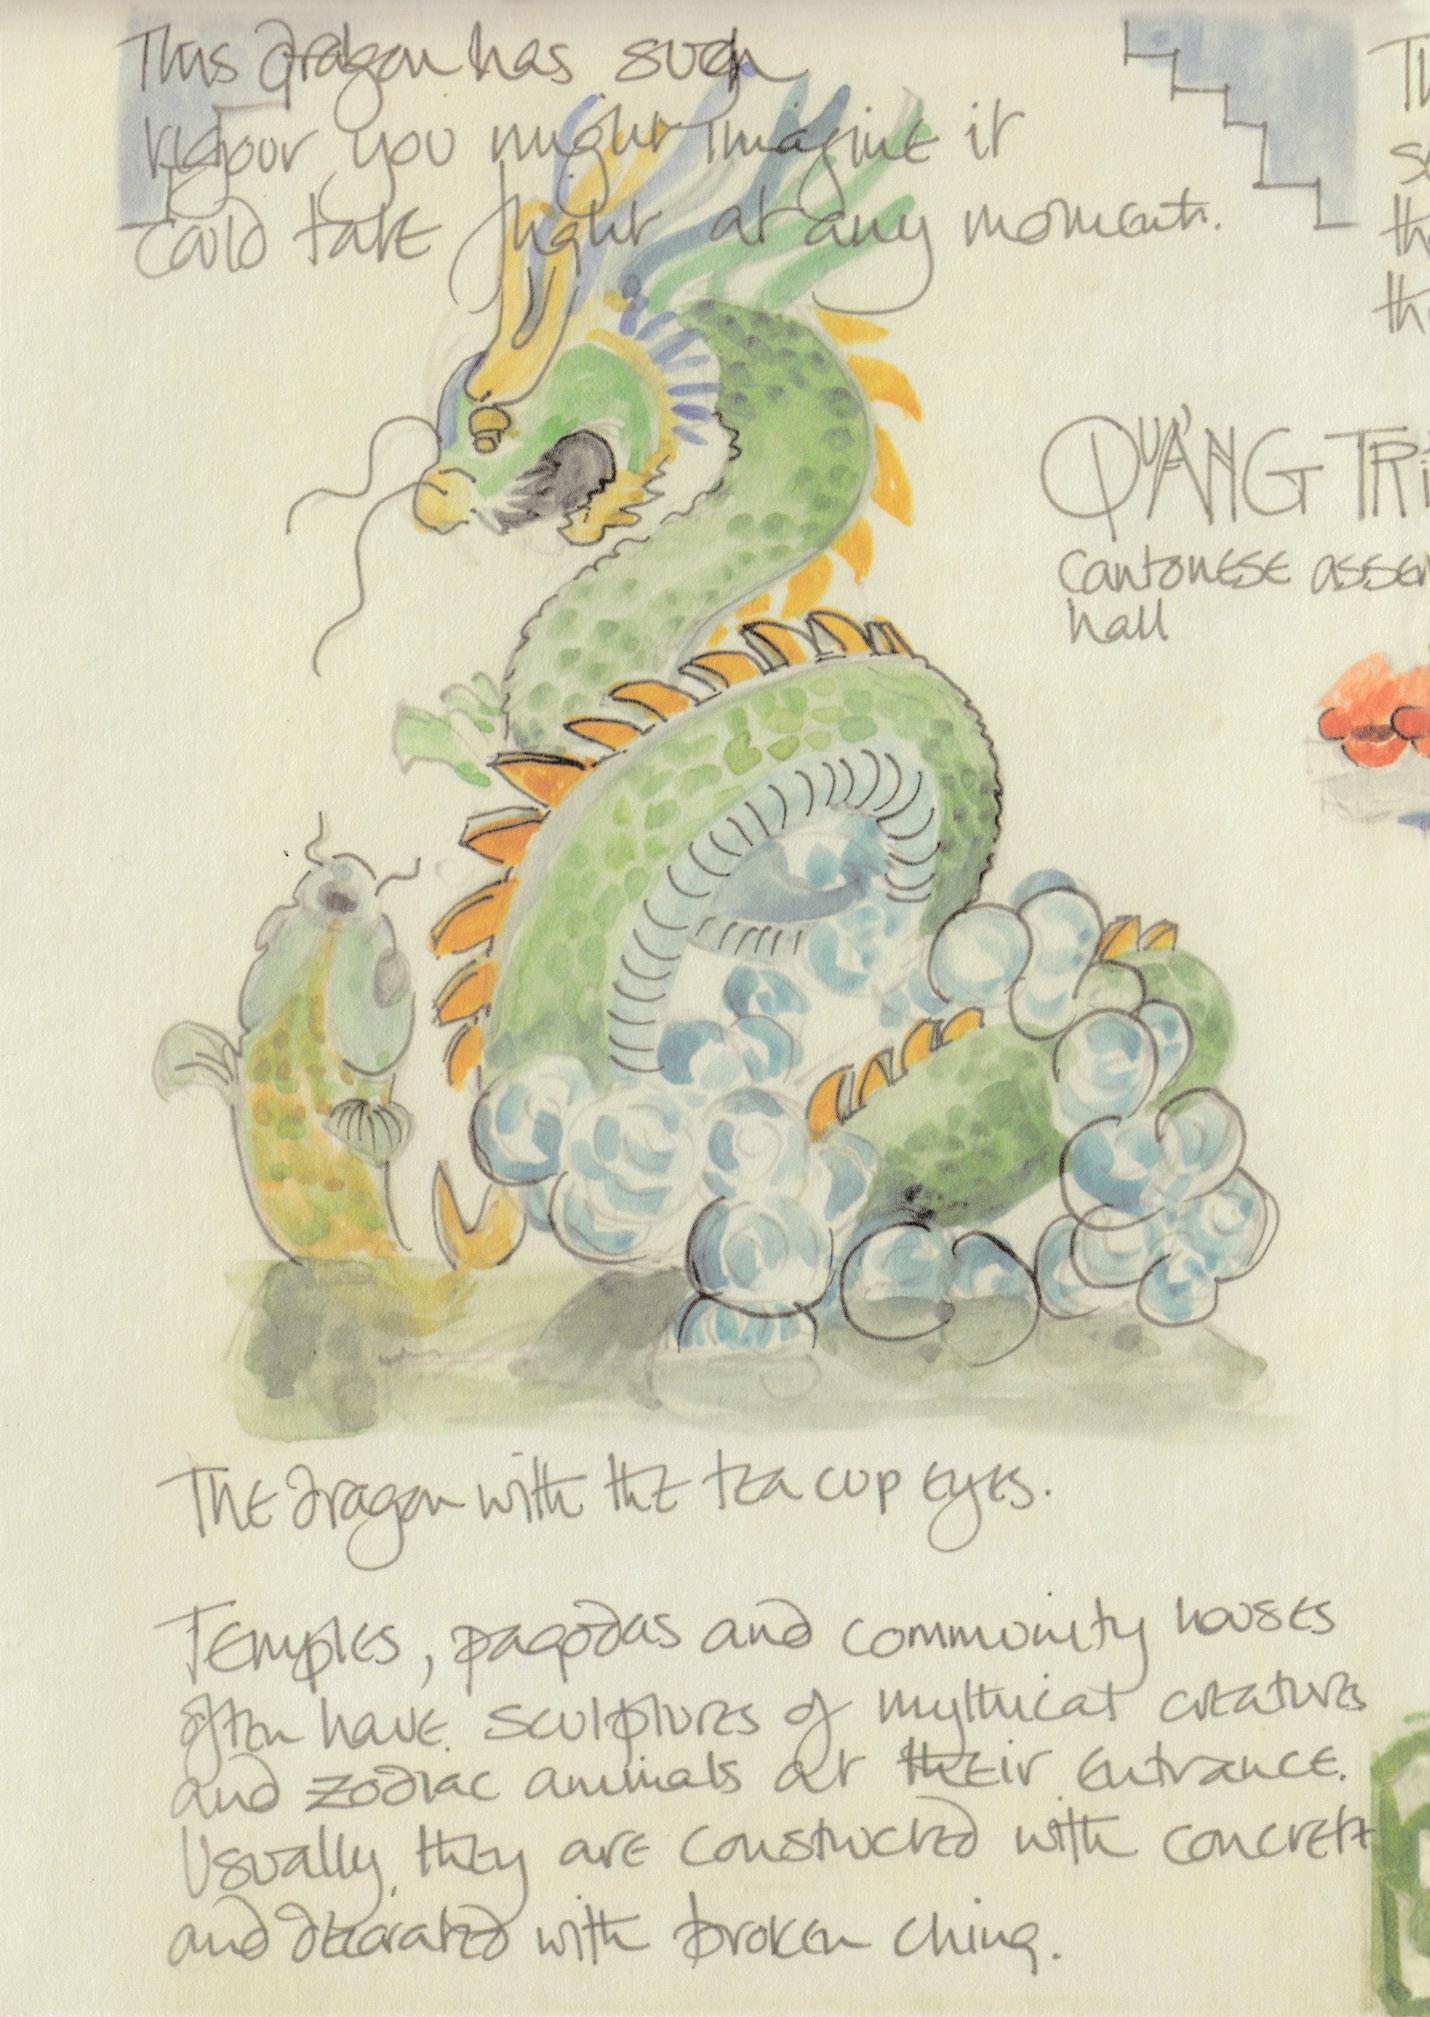 This dragon has such
vigour you might imagine it
could take flight at any moment.
QUẢNG TRI
cantonese assem
hall
The dragon with the tea cup eyes.
Temples, pagodas and community houses
often have sculptures of mythical creatures
and zodiac animals at their entrance.
Usually, they are constructed with concrete
and decorated with broken china.
Th
so
the
the